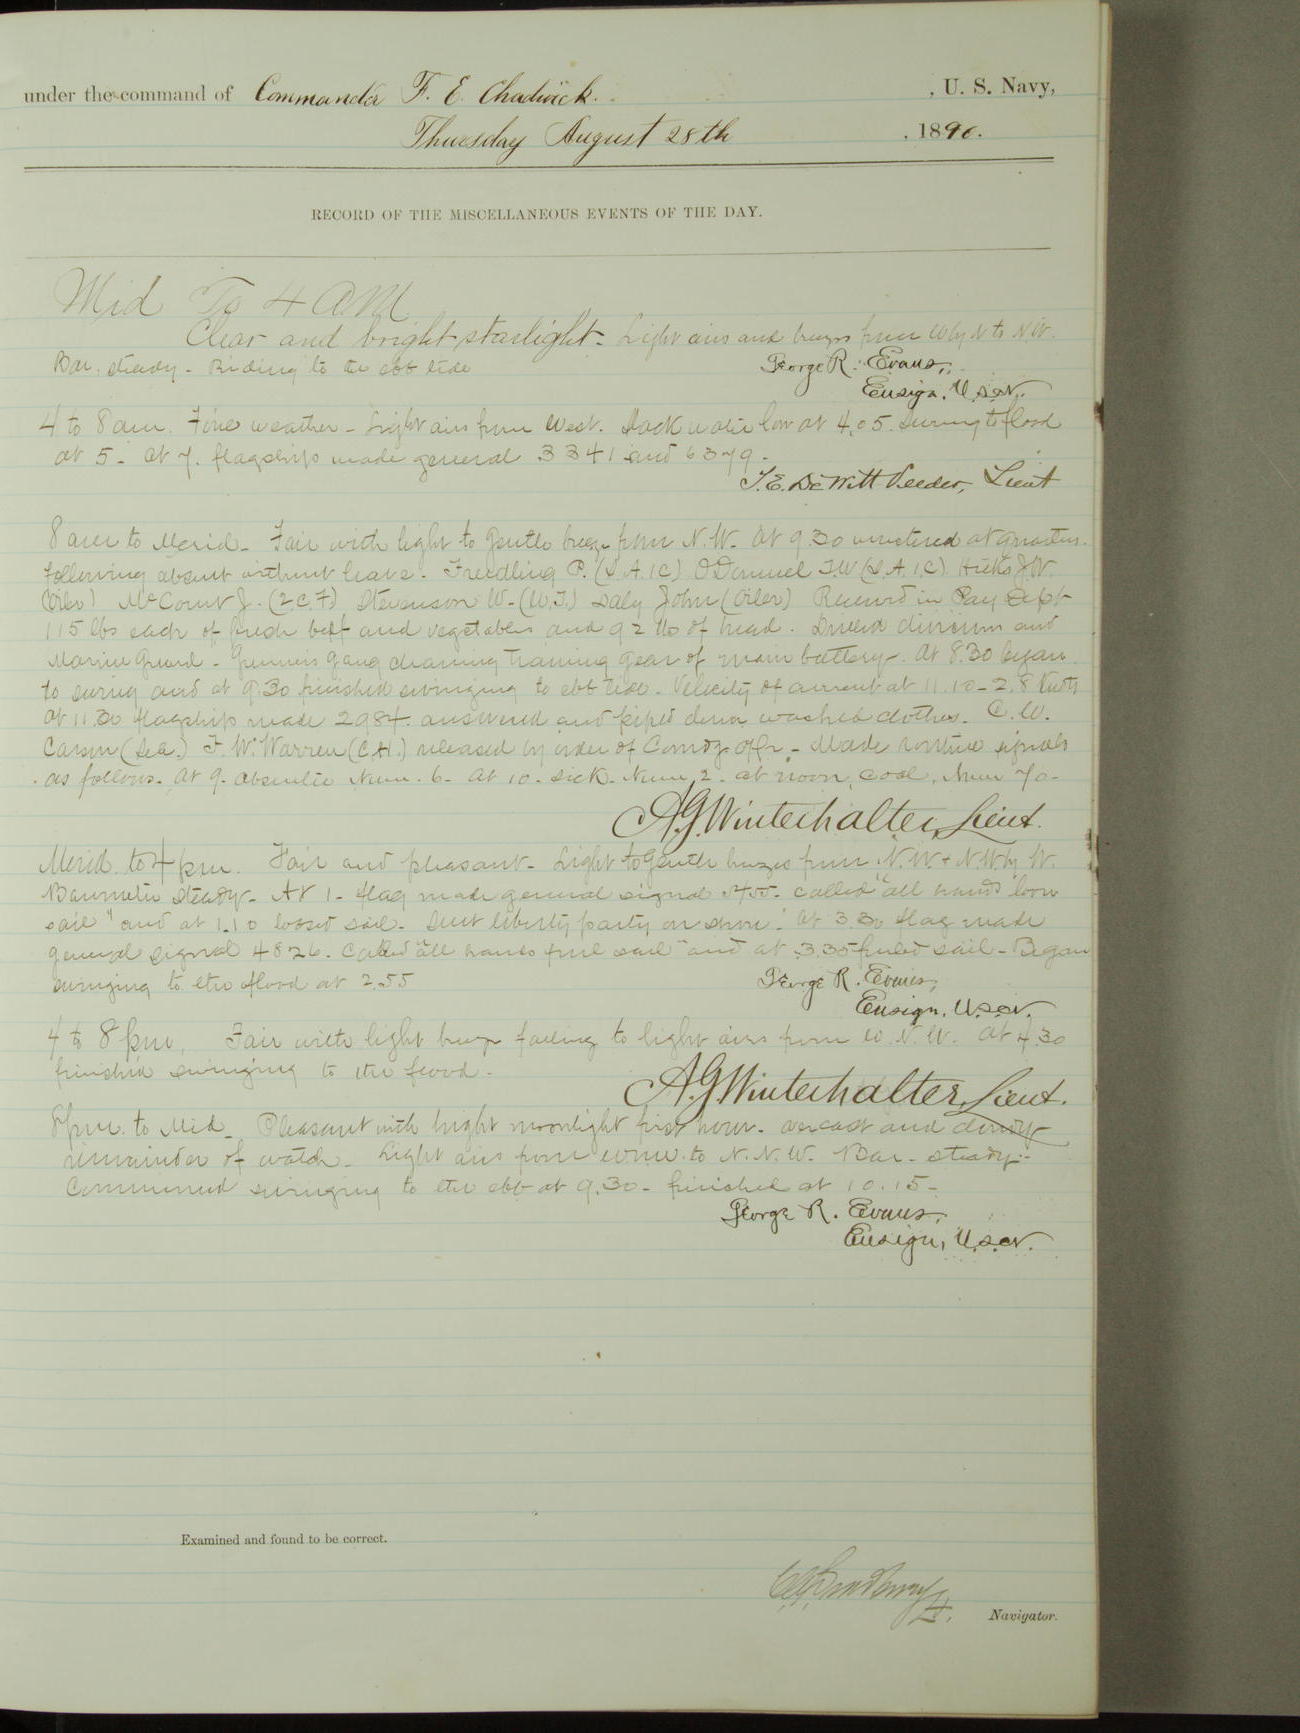 under the command of Commander F. E. Chadwick. , U. S. Navy,
Thursday August 28th , 1890.
RECORD OF THE MISCELLANEOUS EVENTS OF THE DAY.
Mid To 4 AM
Clear and bright starlight - Light airs and breezes from W by N to NW.
Bar. steady - Riding to the ebb tide
George R. Evans,
Ensign, U.S.N.
4 to 8 am. Fine weather - Light airs from West. Slack water low at 4.05. Swung to flood
at 5 - at 7. flagship made general 3341 and 6379.
T. E. DeWitt Veeder, Lieut
8 am to Merid - Fair with light to gentle breeze from N.W. At 9.30 mustered at quarters.
following absent without leave. Freedling P. (S.A.1C) O'Donnel T.W (S.A.1.C.) Hicks J.W.
(Oiler) McCourt J. (2 C.F) Stevenson W. (W.T.) Daly John (Oiler) Received in Pay Dept
115 lbs each of fresh beef and vegetables and 92 lbs of bread. Drilled divisions and
Marine Guard - Gunners gang cleaning training gear of main battery. At 8.30 began
to swing and at 9.30 finished swinging to ebb tide. Velocity of current at 11.10 - 2.8 Knots
At 11.30 flagship made 2984. answered and piped down washed clothes. C. W.
Carson (Sea.) F. W. Warren (C.H.) released by order of Comdg offr - Made routine signals
as follows. At 9. absentee Num. 6 - At 10. sick. Num. 2. at noon, coal, Num 70 -
A.G. Winterhalter, Lieut.
Merid. to 4 pm. Fair and pleasant - Light to Gentle breezes from N.W. + N.W by W.
Barometer Steady - At 1 - flag made general signal called "all hands loose
sail" and at 1.10 loosed sail. Sent liberty party on shore. At 3.30 flag made
general signal 4826. Called "all hands furl sail" and at 3.35 furled sail - Began
swinging to the flood at 2.55
George R. Evans,
Ensign, U.S.N.
4 to 8 pm. Fair with light breeze falling to light airs from W.N.W. At 4.30
finished swinging to the flood.
A.G. Winterhalter, Lieut.
8 pm. to Mid - Pleasant with bright moonlight first hour - overcast and cloudy
remainder of watch - Light airs from WNW. to N.N.W. Bar. steady -
Commenced swinging to the ebb at 9.30 - finished at 10.15 -
George R. Evans,
Ensign, U.S.N.
Examined and found to be correct.
Navigator.